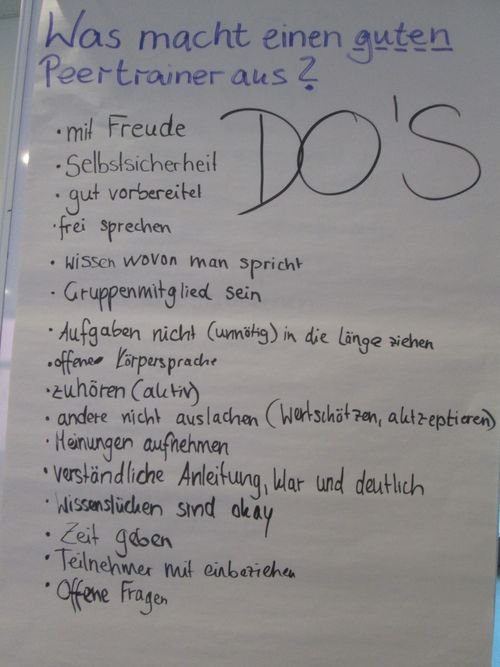 Was macht einen guten
Peertrainer aus?
DO'S
• mit Freude
• Selbstsicherheit
• gut vorbereitet
• frei sprechen
• wissen wovon man spricht
• Gruppenmitglied sein
• Aufgaben nicht (unnötig) in die Länge ziehen
• offene Körpersprache
• zuhören (aktiv)
• andere nicht auslachen (Wertschätzen, aktzeptieren)
• Meinungen aufnehmen
• verständliche Anleitung, klar und deutlich
• Wissenslücken sind okay
• Zeit geben
• Teilnehmer mit einbeziehen
• Offene Fragen